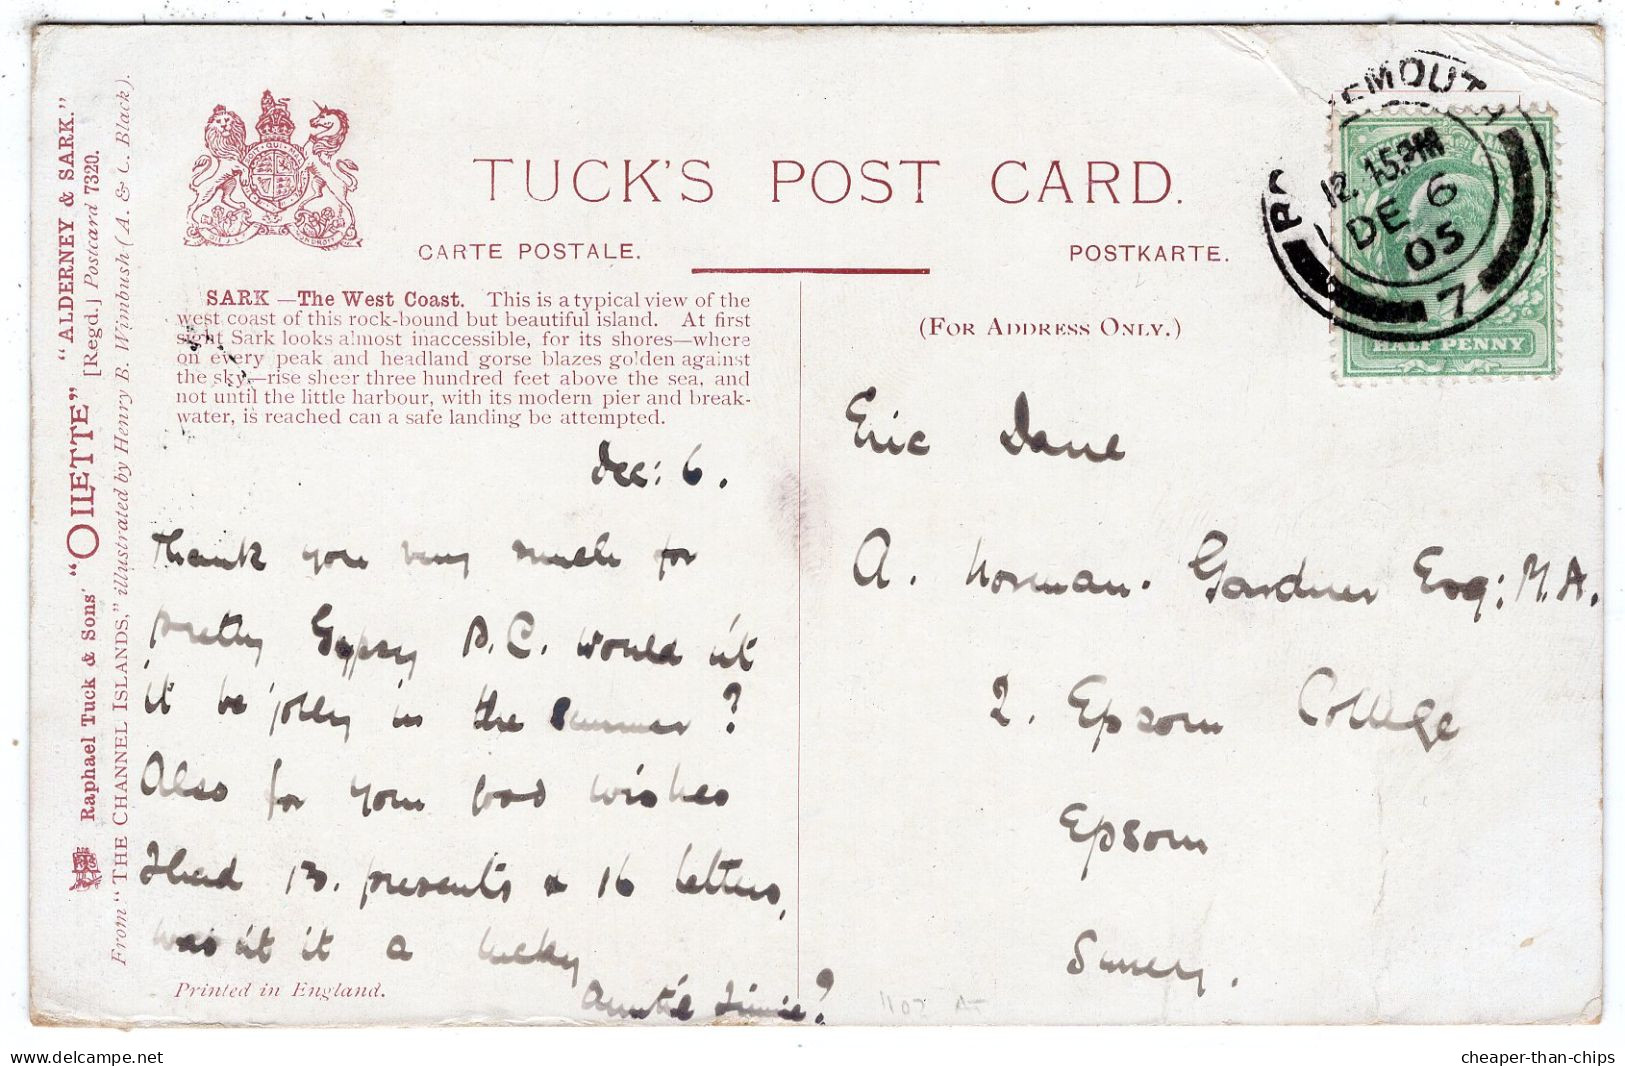 Raphael Tuck & Sons' "OILETTE" "ALDERNEY & SARK."
[Regd.] Postcard 7320.
From "THE CHANNEL ISLANDS," illustrated by Henry B. Wimbush (A. & C. Black).
TUCK'S POST CARD.
CARTE POSTALE.
POSTKARTE.
(FOR ADDRESS ONLY.)
SARK —The West Coast. This is a typical view of the
west coast of this rock-bound but beautiful island. At first
sight Sark looks almost inaccessible, for its shores—where
on every peak and headland gorse blazes golden against
the sky,—rise sheer three hundred feet above the sea, and
not until the little harbour, with its modern pier and break-
water, is reached can a safe landing be attempted.
Dec: 6.
Thank you very much for
pretty Gypsy P.C. would it
it be jolly in the summer?
Also for your good wishes
I had 13. presents & 16 letters,
was it it a lucky
Auntie ?
Printed in England.
EMOUTH
12.15PM
DE 6
05
7
HALF PENNY
Eric Dane
A. Norman. Gardner Esq: M.A.
2. Epsom College
Epsom
Surrey.
cheaper-than-chips